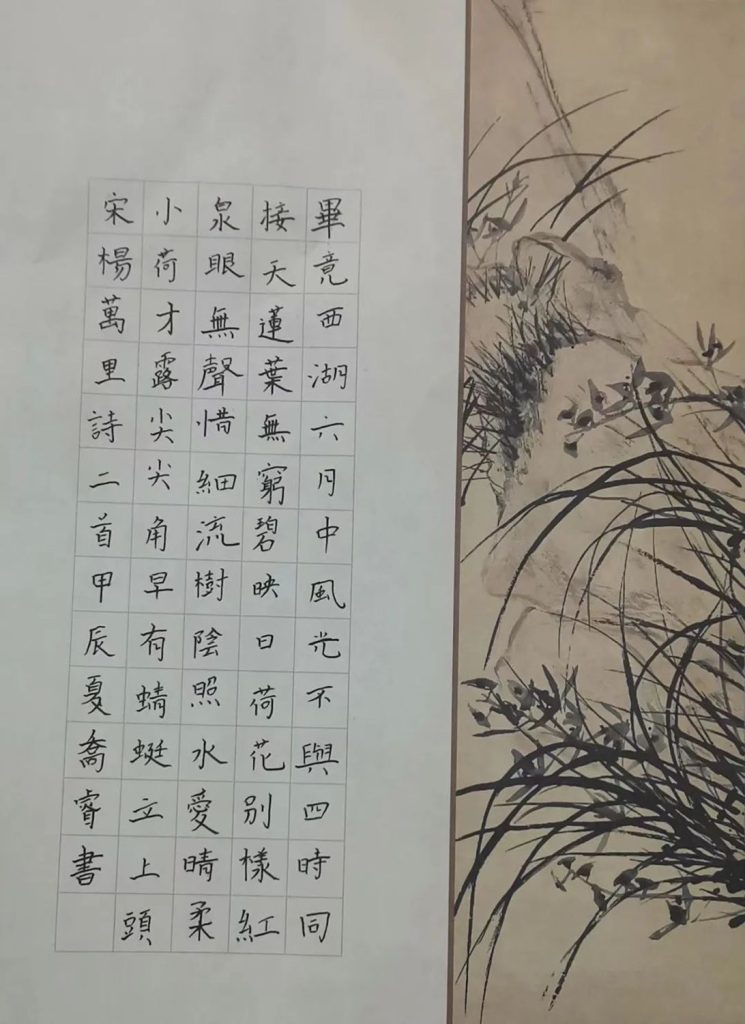 畢竟西湖六月中風光不與四時同
接天蓮葉無窮碧映日荷花別樣紅
泉眼無聲惜細流樹陰照水愛晴柔
小荷才露尖尖角早有蜻蜓立上頭
宋楊萬里詩二首甲辰夏喬睿書